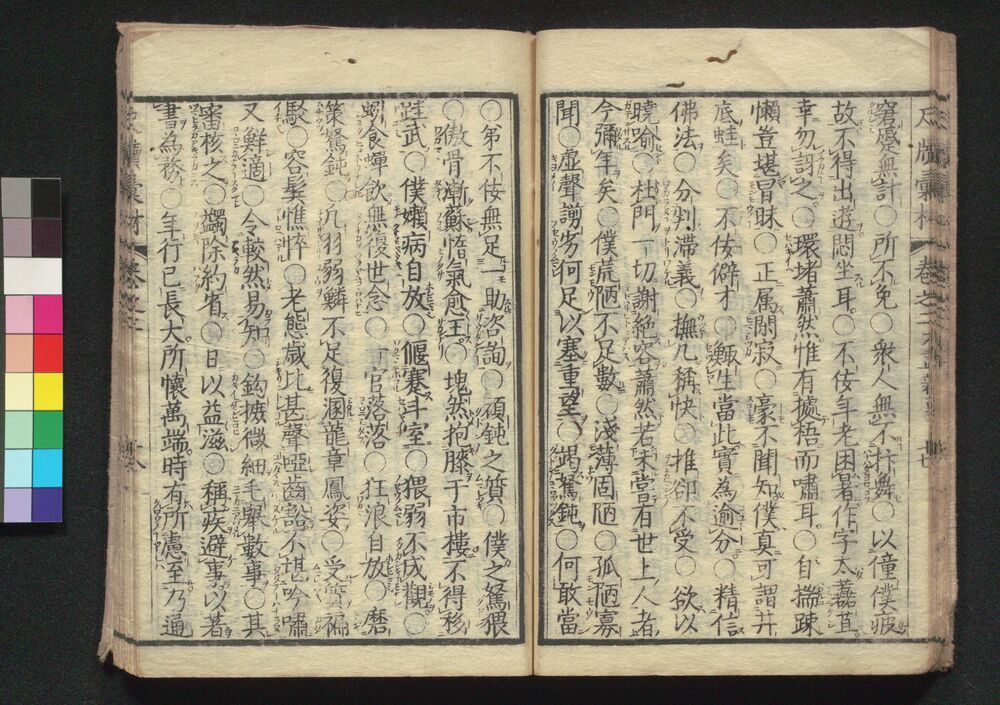 窮蹙無計○所不免○衆人無不抃舞○以僮僕疲
故不得出遊悶坐耳○不佞年老困暑作字太
幸勿訝之○環堵蕭然惟有據梧而嘯耳○自揣疎
懶豈堪冒昧○正属閴寂○豪不聞知僕真可謂井
底蛙矣○不佞僻才○鯫生當此實為逾分○精信
佛法○分刿滯義○撫几稱快○推卻不受○欲以
曉喻○杜門一切謝絶容蕭然若未嘗有世上人者
今彌年矣○僕荒陋不足數○淺薄固陋○孤陋寡
聞○虛聲謭劣何足以塞重望○竭駑鈍○何敢當
○弟不佞無足一助咨詢○頑鈍之質○僕之駑猥
○傲骨漸蘇惰氣愈王○塊然抱膝于市樓不得移
跬武○僕嬾病自放○偃蹇斗室○猥弱不成觀○
蚓食蟬飲無復世念○一官落落○狂浪自放○磨
策駑鈍○凡羽弱鱗不足復溷龍章鳳姿○受質褊
駁○容髮憔悴○老態歳比甚聲啞齒豁不堪吟嘯
又鮮適○令較然易知○鈎摭微細毛舉數事○其
審核之○蠲除約省○日以益滋○稱疾避事以著
書為務○年行已長大所懷萬端時有所慮至乃通